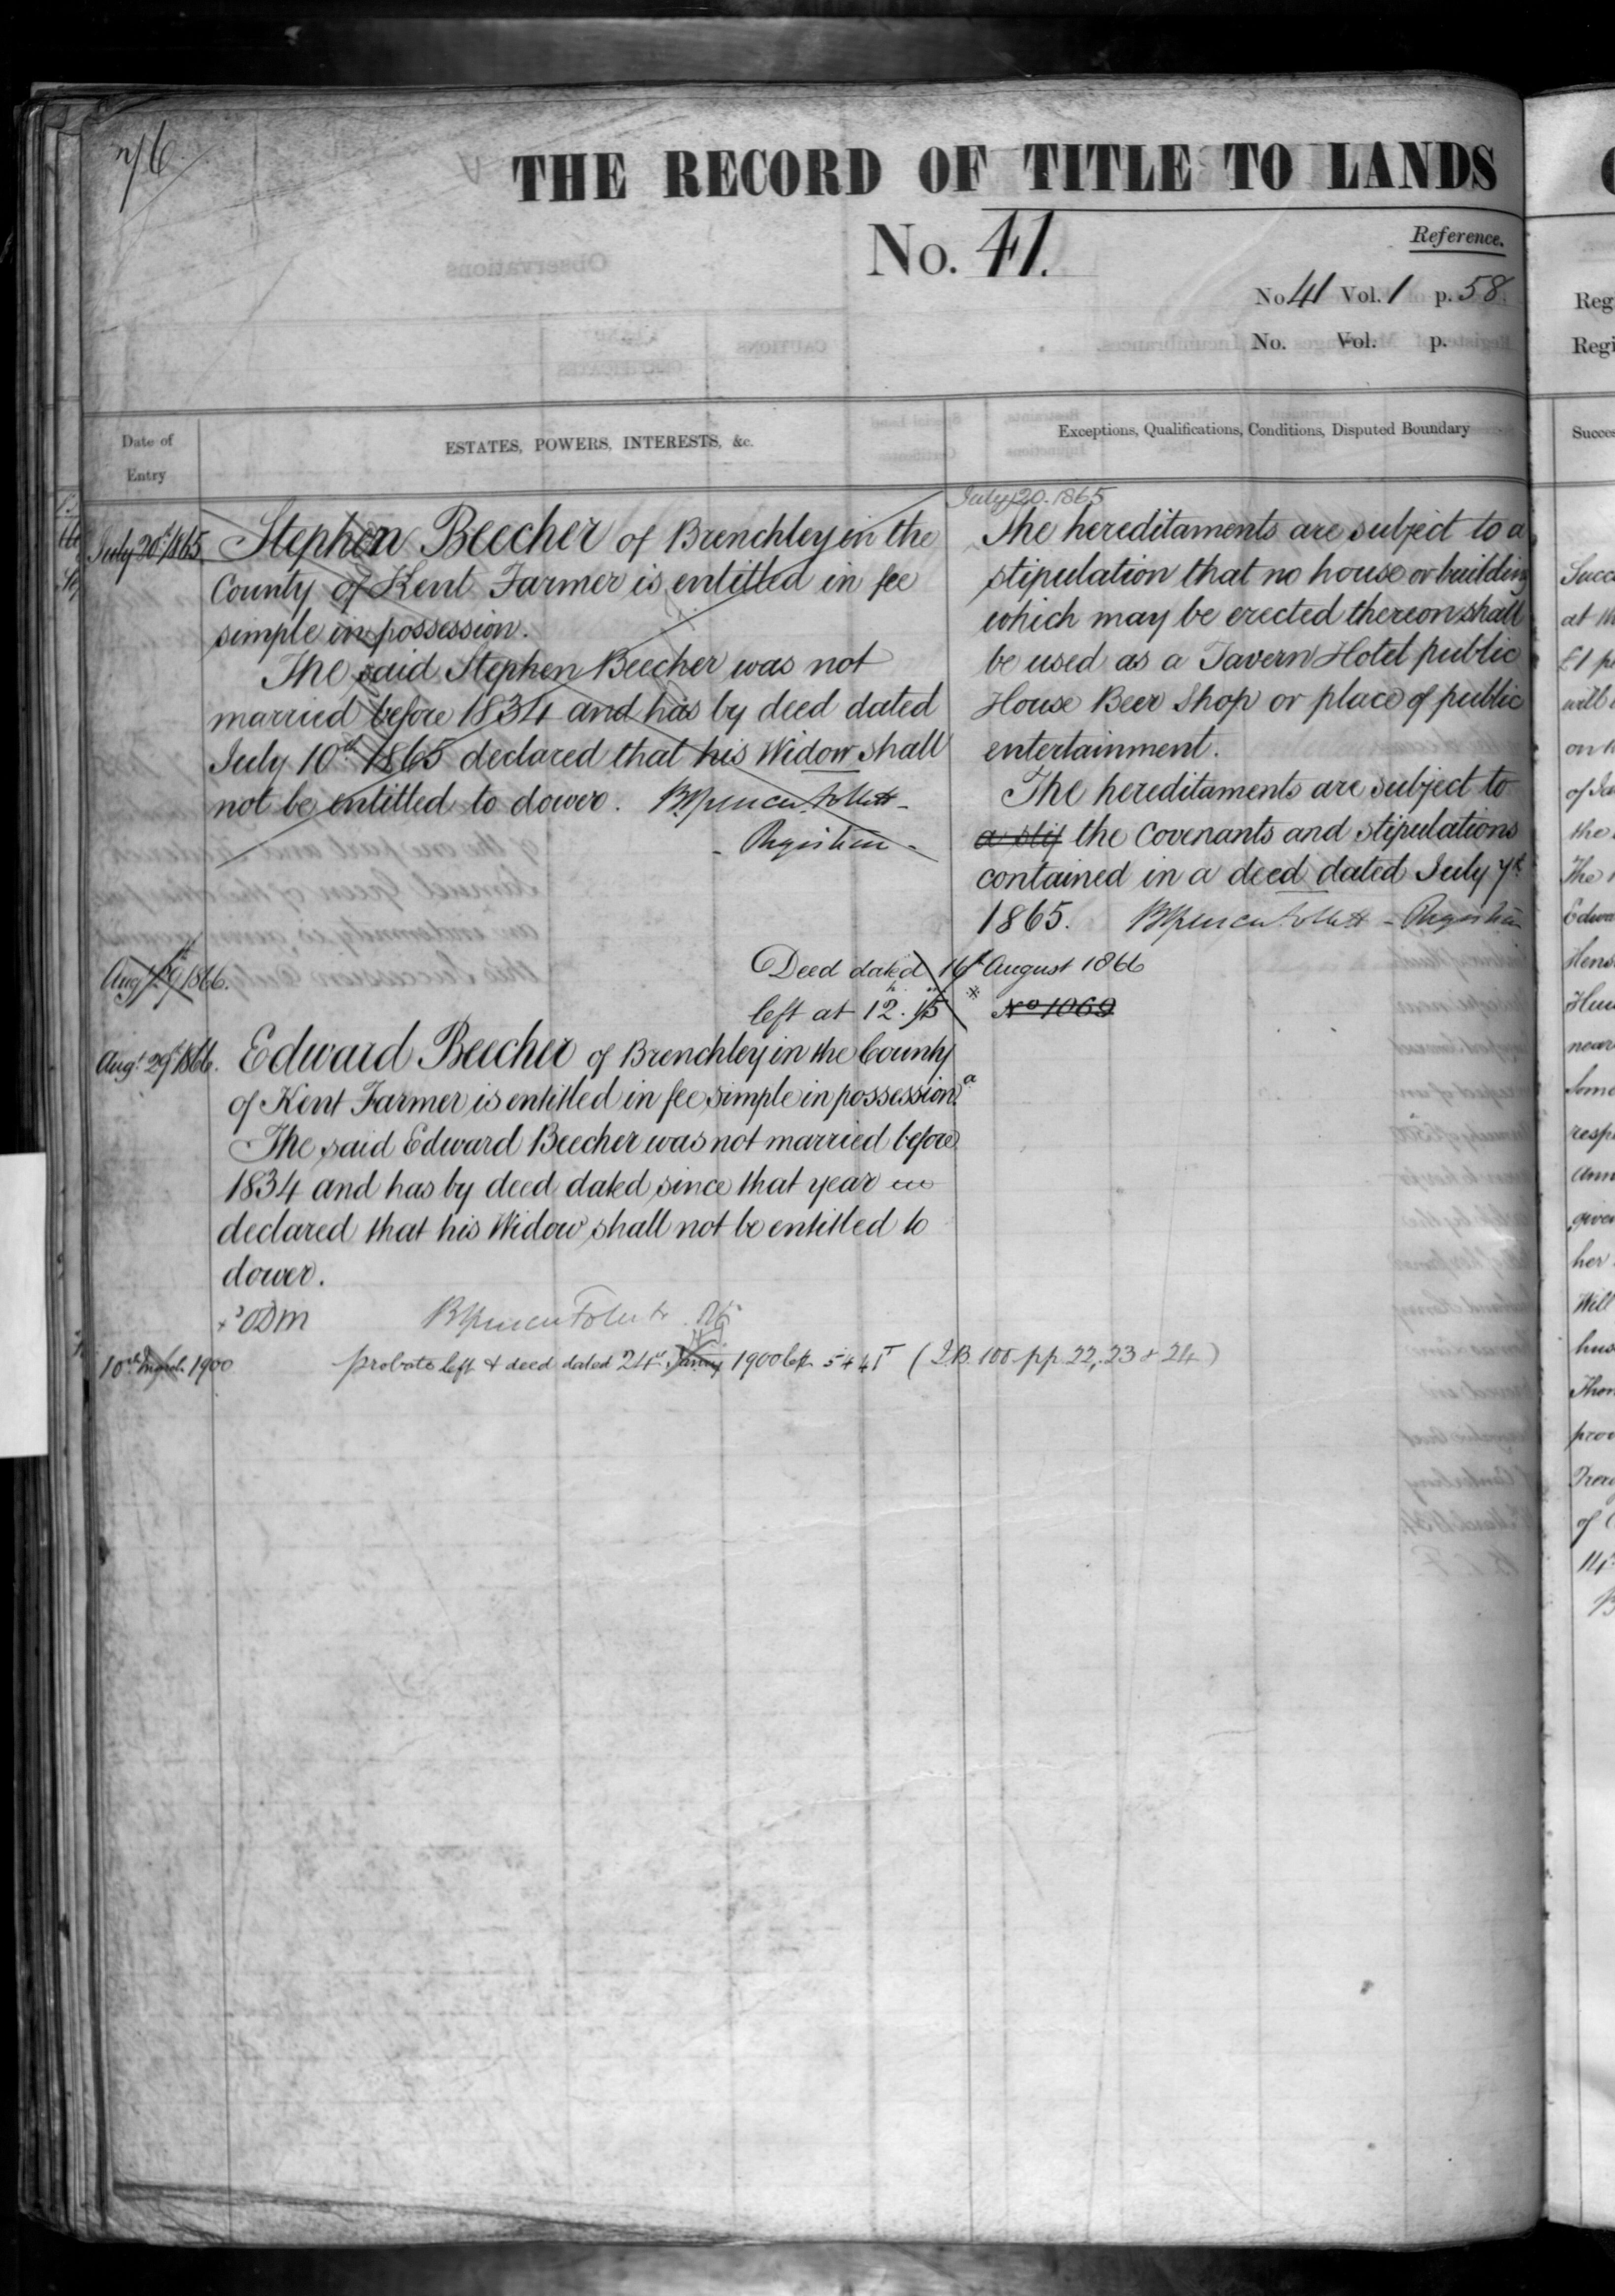 THE RECORD OF TITLE TO LANDS
No. 41.
Reference.
No 41 Vol. 1 p. 58
No. Vol. p.
Date of Entry
ESTATES, POWERS, INTERESTS, &c.
Exceptions, Qualifications, Conditions, Disputed Boundary
July 20th 1865
Stephen Beecher of Brenchley in the
County of Kent Farmer is entitled in fee
simple in possession.
The said Stephen Beecher was not
married before 1834 and has by deed dated
July 10th 1865 declared that his Widow shall
not be entitled to dower. B Spencer Follett
Registrar
July 20. 1865
The hereditaments are subject to a
stipulation that no house or building
which may be erected thereon shall
be used as a Tavern Hotel public
House Beer Shop or place of public
entertainment.
The hereditaments are subject to
a stip the Covenants and stipulations
contained in a deed dated July 7th
1865. B Spencer Follett - Registrar
Aug 1866.
Deed dated August 1866
left at 12. 15 No 1069
Augt 29th 1866.
Edward Beecher of Brenchley in the County
of Kent Farmer is entitled in fee simple in possession.
The said Edward Beecher was not married before
1834 and has by deed dated since that year
declared that his Widow shall not be entitled to
dower.
B Spencer Follett
10th March 1900
probate left & deed dated 24th Jany 1900 left 5441 (I.B. 100 pp. 22, 23 & 24)
Reg
Regi
Succes
Succ
at th
£1 p
will
on
of Ja
the
The
Edwa
Hens
near
Some
resp
Ann
given
her
Will
hus
Thom
prov
of